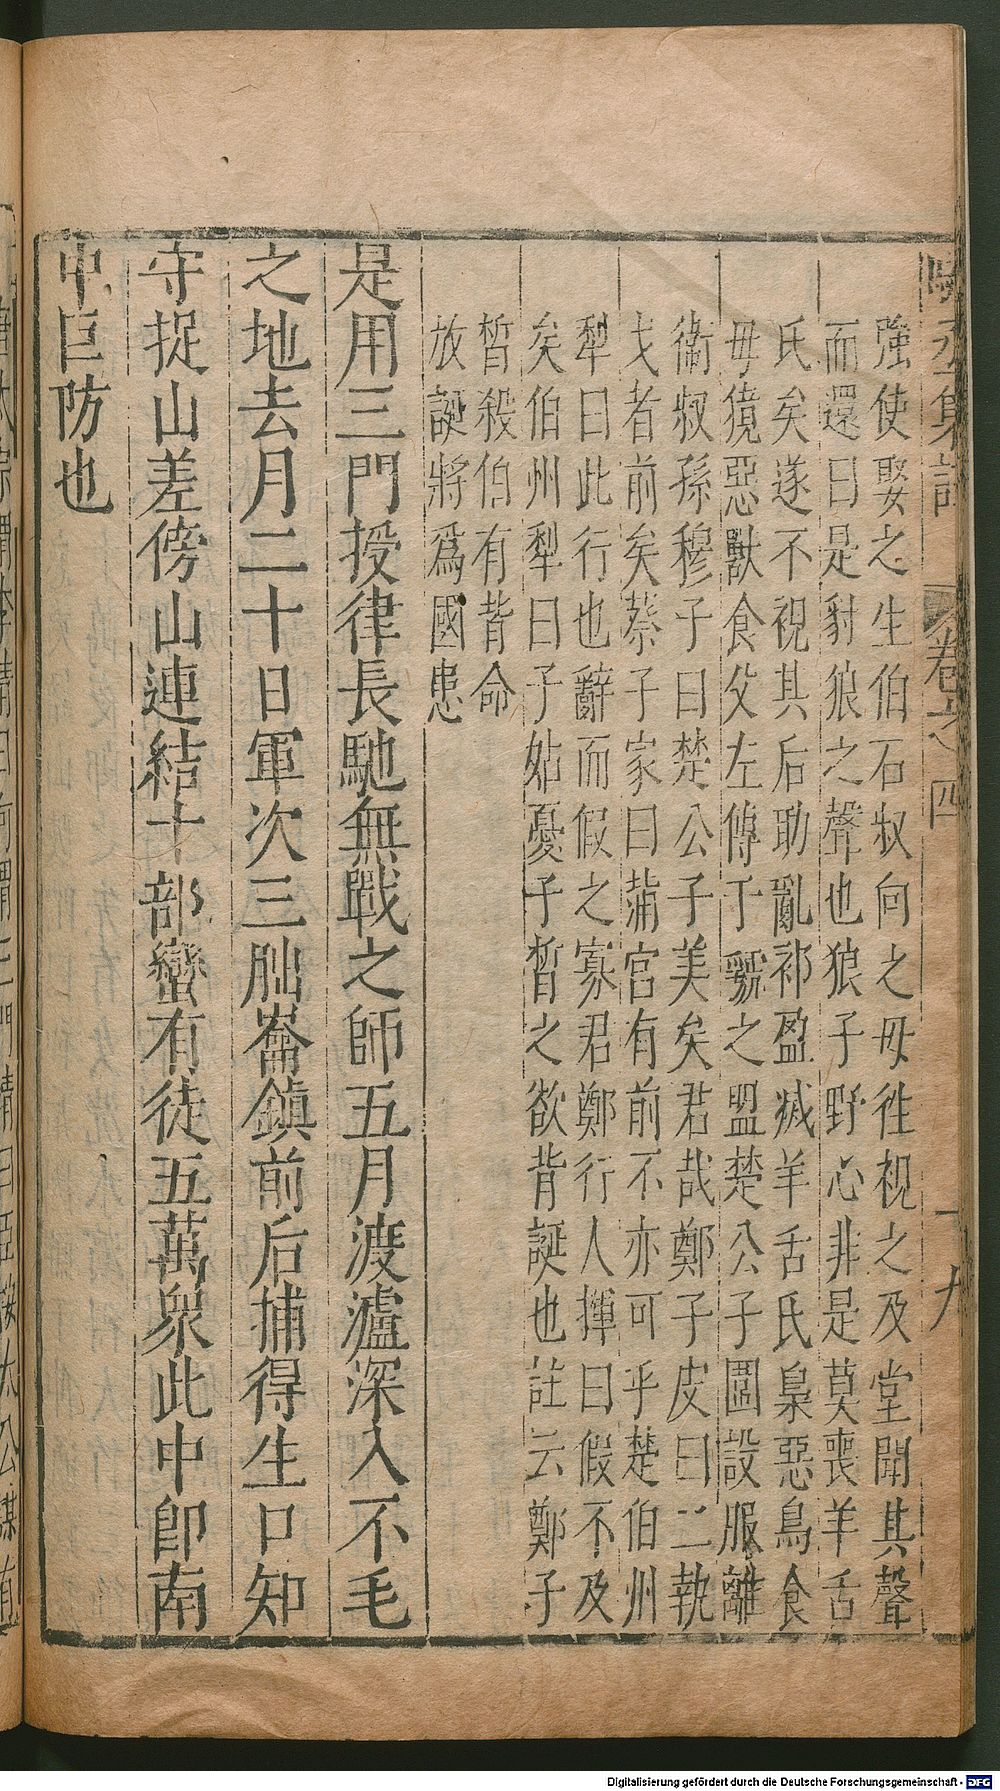 丞集註 卷之四 十九
強使娶之生伯石叔向之母往視之及堂聞其聲
而還曰是豺狼之聲也狼子野心非是莫喪羊舌
氏矣遂不視其后助亂祁盈滅羊舌氏梟惡鳥食
母獍惡獸食父左傳于虢之盟楚公子圍設服離
衛叔孫穆子曰楚公子美矣君哉鄭子皮曰二執
戈者前矣蔡子家曰蒲宮有前不亦可乎楚伯州
犁曰此行也辭而假之寡君鄭行人揮曰假不及
矣伯州犁曰子姑憂子晳之欲背誕也註云鄭子
晳殺伯有背命
放誕將爲國患
是用三門授律長馳無戰之師五月渡瀘深入不毛
之地去月二十日軍次三朏崙鎮前后捕得生口知
守捉山差傍山連結十部蠻有徒五萬衆此中卽南
中巨防也
Digitalisierung gefördert durch die Deutsche Forschungsgemeinschaft - DFG